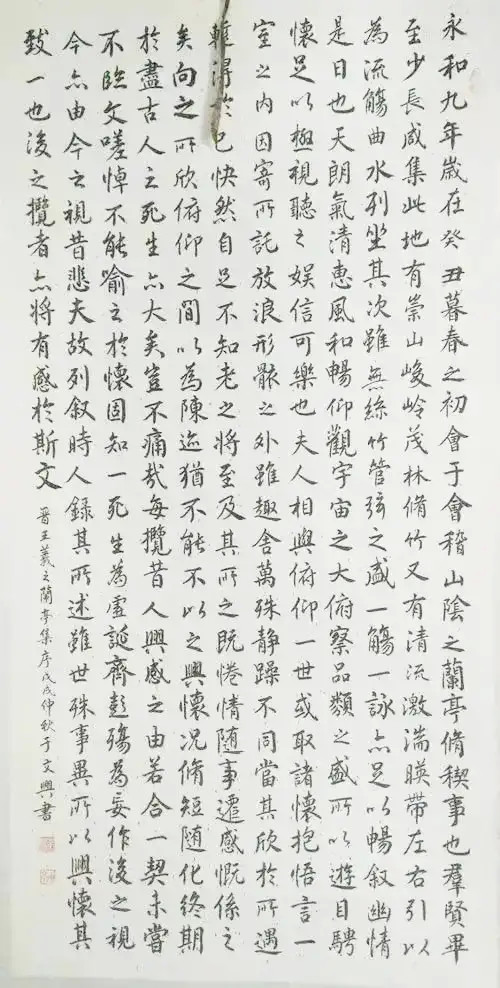 永和九年歲在癸丑暮春之初會于會稽山陰之蘭亭脩稧事也羣賢畢
至少長咸集此地有崇山峻岭茂林脩竹又有清流激湍暎帶左右引以
為流觴曲水列坐其次雖無絲竹管弦之盛一觴一詠亦足以暢叙幽情
是日也天朗氣清惠風和暢仰觀宇宙之大俯察品類之盛所以遊目騁
懷足以極視聽之娱信可樂也夫人相與俯仰一世或取諸懷抱悟言一
室之内因寄所託放浪形骸之外雖趣舍萬殊静躁不同當其欣於所遇
蹔得於己快然自足不知老之將至及其所之既惓情随事遷感慨係之
矣向之所欣俯仰之間以為陳迹猶不能不以之興懷况脩短随化終期
於盡古人云死生亦大矣豈不痛哉每攬昔人興感之由若合一契未嘗
不臨文嗟悼不能喻之於懷固知一死生為虚誕齊彭殤為妄作後之視
今亦由今之視昔悲夫故列叙時人録其所述雖世殊事異所以興懷其
致一也後之攬者亦将有感於斯文
晋王羲之蘭亭集序戊戌仲秋于文興書